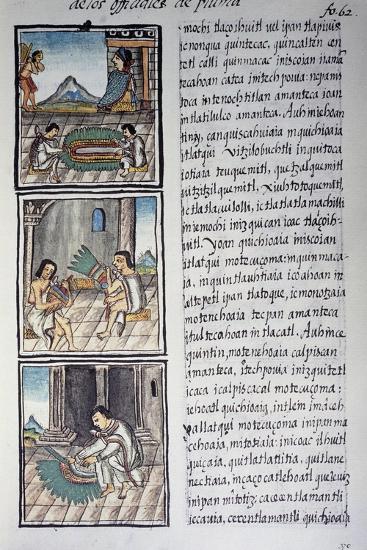 delos officiales de pluma
fo. 62.
mochi tlaçoihuitl vel ipan tlapivis
ic nonqua quintecac, quincalten cen
tetl calli quinmacac iniscoian namā
tecahoan catca imtech povia: nepanis
toca in tenochtitlan amanteca ioan
in tlatilulco amanteca. Auh iniehoan
tinȷ, çanquiscahuiaia in quichioaia
itlatqui Vitzilobuchtli in quitoca
iotiaia teuquemitl, quetzalquemitl
vitzitzilquemitl, xiuhtotoquemitl,
ic tlatlacuilolli, ic tlatlatlamachilli
in ie mochi inizquican icac tlaçoih-
huitl. Yoan quichioaia iniscoian
itlatqui motecuçoma: in quinmaca-
ia, in quintlauhtiaia icoahoan in
altepetl ipan tlatoque, ic monotzaia
motenehoaia tecpan amanteca
itultecahoan in tlacatl. Auh in ce-
quintin, motenehoaia calpiscan
amanteca, itech povia inizquitetl
icaca icalpiscacal motecuçoma:
iehoatl quichioaia, intlein imaceh-
uallatqui motecuçoma inipan ma-
cehoaia, mitotiaia: inicoac ilhuitl
quiçaia, quitlatlatitia, quitlane-
nectiaia, in çaço catlehoatl queleviz
inipan mitotiz; ca cecentlamantli
iecauia, cecentlamantli quichioaia